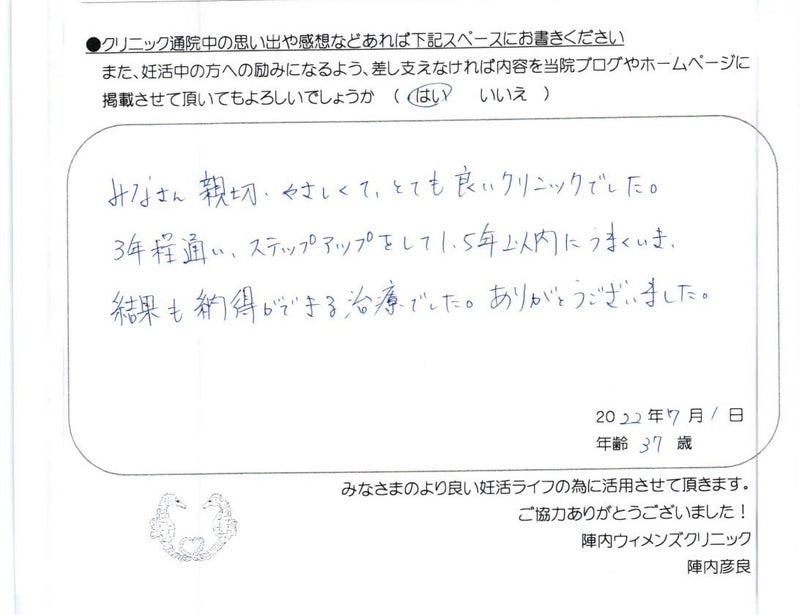 ●クリニック通院中の思い出や感想などあれば下記スペースにお書きください
また、妊活中の方への励みになるよう、差し支えなければ内容を当院ブログやホームページに
掲載させて頂いてもよろしいでしょうか （ はい いいえ ）
みなさん親切、やさしくて、とても良いクリニックでした。
3年程通い、ステップアップをして1.5年以内にうまくいき、
結果も納得ができる治療でした。ありがとうございました。
2022年7月1日
年齢 37 歳
みなさまのより良い妊活ライフの為に活用させて頂きます。
ご協力ありがとうございました！
陣内ウィメンズクリニック
陣内彦良